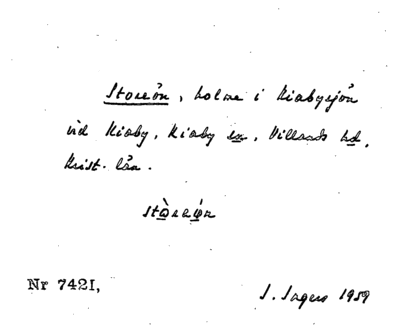 Storeön, holme i Kiabysjön
vid Kiaby, Kiaby sn, Villands hd,
Krist. län.
Nr 7421, I. Ingers 1959